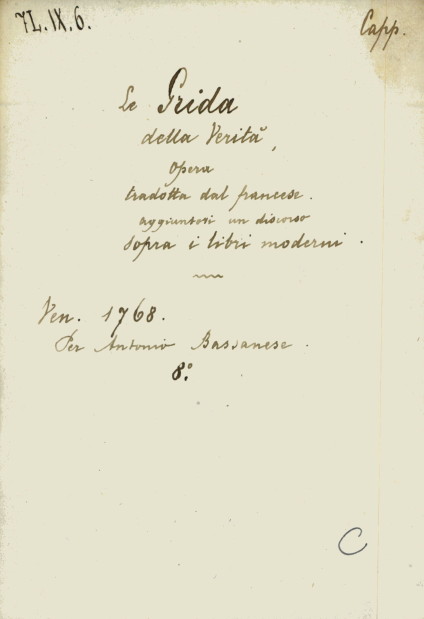 7L.IX.6.
Capp.
Le Grida
della Verità,
Opera
tradotta dal francese.
aggiuntovi un discorso
sopra i libri moderni.
Ven. 1768.
Per Antonio Bassanese.
8.º
C